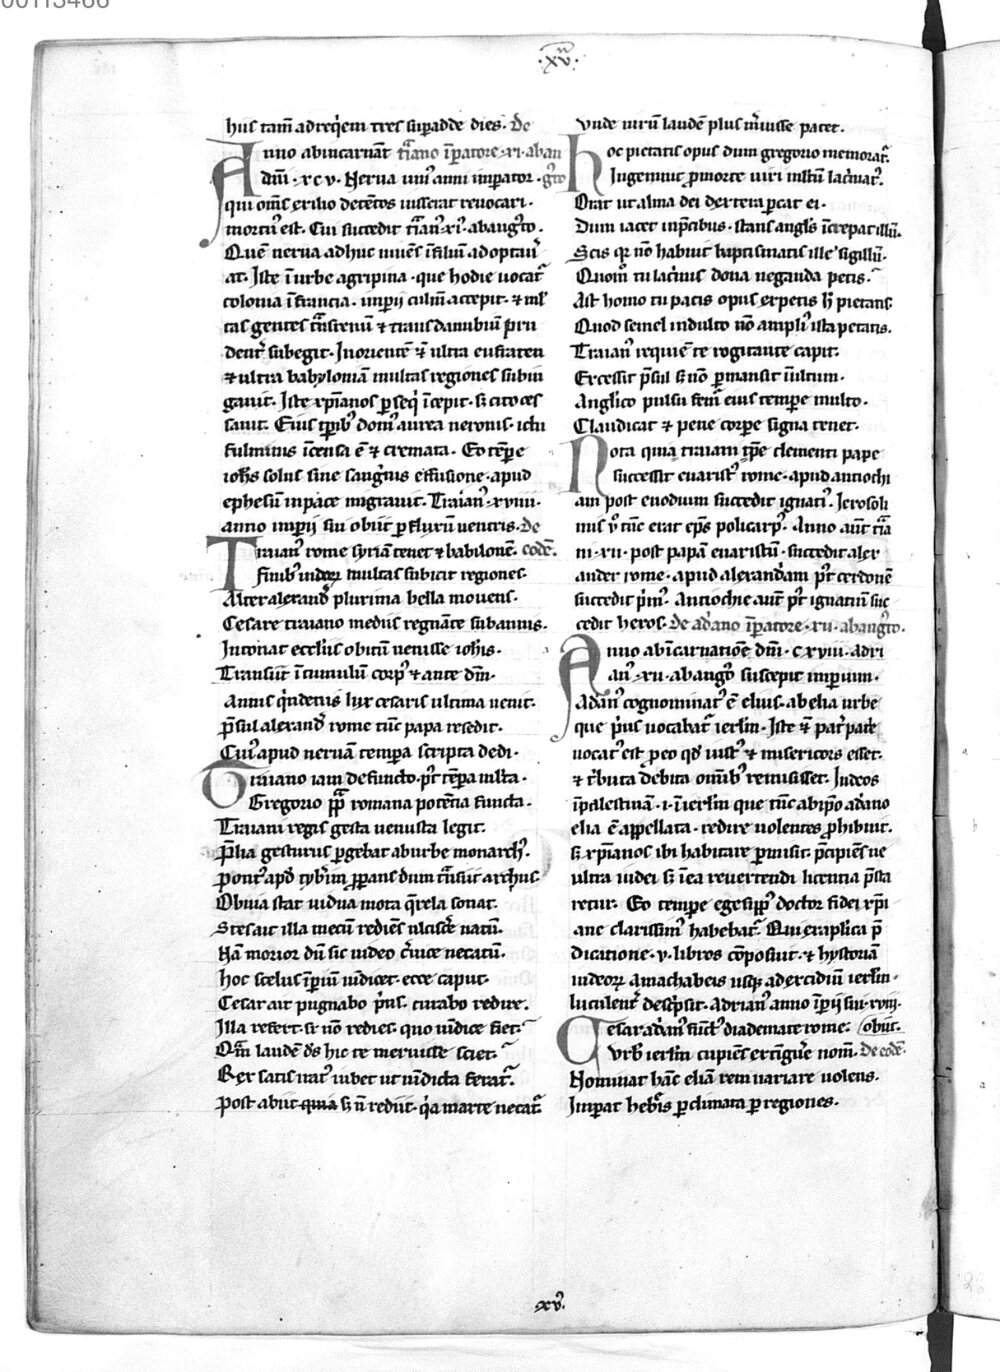 00113466
·xv·
hus tam̄ ad req̇em tres suꝑadde dies. De
Anno ab incarnat̄ t̄iano īꝑatore·xi·ab au
d̄ni·xcv· Nerua uni᷒ anni imperator·gꝰto
qui om̄s exilio detētos iusserat reuocari·
mortu᷒ est. Cui succedit t̄ian᷒·xi᷒·ab augꝰto·
Quē nerua adhuc uiuēs ī filiū adoptau᷒
at. Iste ī urbe agripina·que hodie uocat᷒
colonia ī francia· imperii culm̄ accepit·⁊ ml᷒
tas gentes t̄ns renū ⁊ t̄ns danubiū pru
dent᷒ subegit· In oriente ⁊ ultra eufraten
⁊ ultra babyloniam multas regiones subiu
gauit. Iste xp̄ianos ꝑseq̇ īcepit· s; cito ces
sauit. Eius tp̄ib᷒ dom᷒ aurea neronis·ictu
fulminis īcensa ē ⁊ cremata. Eo tēꝑe
ioħs solus sine sang᷒nis effusione·apud
ephesū in pace migrauit· Traian᷒·xviiii·
anno imperii sui obiit ꝑ fluxū uentris· De
Traian᷒ rome syriā tenet ⁊ babilonē· eodē·
finib᷒ indoꝝ multas subicit regiones·
Alter alexand᷒ plurima bella mouens·
Cesare traiano medius regnāte sub annis·
Intonat ecclīis obitū uenisse ioħis·
Transiit ī cumulū corp᷒ ⁊ ante d̄m·
Annis q̇ndenis lux cesaris ultima uenit·
p̄sul alexand᷒ rome tūc papa resedit·
Cui᷒ apud neruā tempora scripta dedi·
Traiano iam defuncto·p᷒t tēꝑa multa·
Gregorio pp̄ romana potētia functa·
Traiani regis gesta uenusta legit·
P̄lia gesturus ꝑgebat ab urbe monarch᷒·
Pont᷒ apd̄ tyb᷒im ꝓꝑans dum t̄nsiit archus·
Obuia stat uidua mota q᷒rela sonat·
Stes ait illa mecū rediēs ulcisc̄e natū·
Nā morior dū sic uideo c᷒uice necatū·
Hoc scelus īpiū iudicet· ecce caput·
Cesar ait pugnabo p᷒us· curabo redire·
Illa refert· si nō redies· quo iudice fiet·
Qm̄ laudē d̄s hic te meruisse sciet·
Rex satis nat᷒ iubet ut uīdicta ferat᷒·
Post abiit quia s; n̄ rediit· q̇a marte necat᷒
Vnde uirū laudē plus m᷒uisse patet·
Hoc pietatis opus dum gregorio memorat᷒·
Ingemuit ꝓ morte uiri iustū lac᷒mat᷒·
Orat ut alma dei dextera parcat ei·
Dum iacet in p̄cibus· stans angl̄s īcrepat illū·
Scis q᷒ nō habuit baptismatis ille sigillū·
Quom̊ tu lac᷒mis dona neganda petis·
Ast homo tu pacis opus expetis h̄ pietatis·
Quod semel indulto nō ampli᷒ ista petatis·
Traian᷒ requiē te rogitante capit·
Excessit p̄sul s; nō ꝑmansit īultum·
Angl̄ico pulsu fem᷒ eius tempore multo·
Claudicat ⁊ pene corpore signa tenet·
Nota quia traiani tp̄e clementi pape
successit euarist᷒ rome·apud antiochi
am post euodium succedit ignati᷒· Ierosoli
mis ū tūc erat ep̄s policarp᷒· Anno aut̄ t᷒ia
ni·xii· post papā euaristū·succedit alex
ander rome·apud alexand᷒iam p᷒t cerdonē
succedit p᷒m᷒· Antiochie aut̄ p᷒t ignatiū suc
cedit heros· De ad᷒ano īꝑatore·xii·ab augꝰto·
Anno ab īcarnatiōe d̄ni·cxviii· adri
an᷒·xii·ab augꝰto suscepit imperium·
Ad᷒an᷒ cognominat᷒ ē elius· ab elia urbe
que p᷒us uocabat᷒ ierl̄m· Iste ⁊ pat᷒ pat᷒e
uocat᷒ est ꝑ eo qd̄ iust᷒ ⁊ misericors esset·
⁊ t᷒buta debita omīb᷒ remisisset· Iudeos
ī palestinā·i·ī ierl̄m que tūc ab ip̄o ad᷒ano
elia ē appellata·redire uolentes ꝓhibuit·
s; xp̄ianos ibi habitare ꝑmisit· p̄cipiēs ne
ultra iudei s; ī ea reuertendi licentia p̄sta
retur· Eo tempore egesipp᷒ doctor fidei xp̄i
ane clarissim᷒ habebat᷒· Qui ex aplica p̄
dicatione·v·libros cōposuit·⁊ hystoriā
iudeoꝝ a machabeis usq; ad excidiū ierl̄m·
luculent᷒ desc᷒psit· Adrian᷒ anno īperii sui·xviii·
Cesar ad᷒an᷒ fūct᷒ diademate rome· obiit·
Vrb᷒ ierl̄m cupiēs extīguere nom̄· De eodē·
Nominat hāc eliā rem uariare uolens·
Imperat heb᷒is ꝑ climata ꝑ regiones·
·xv·